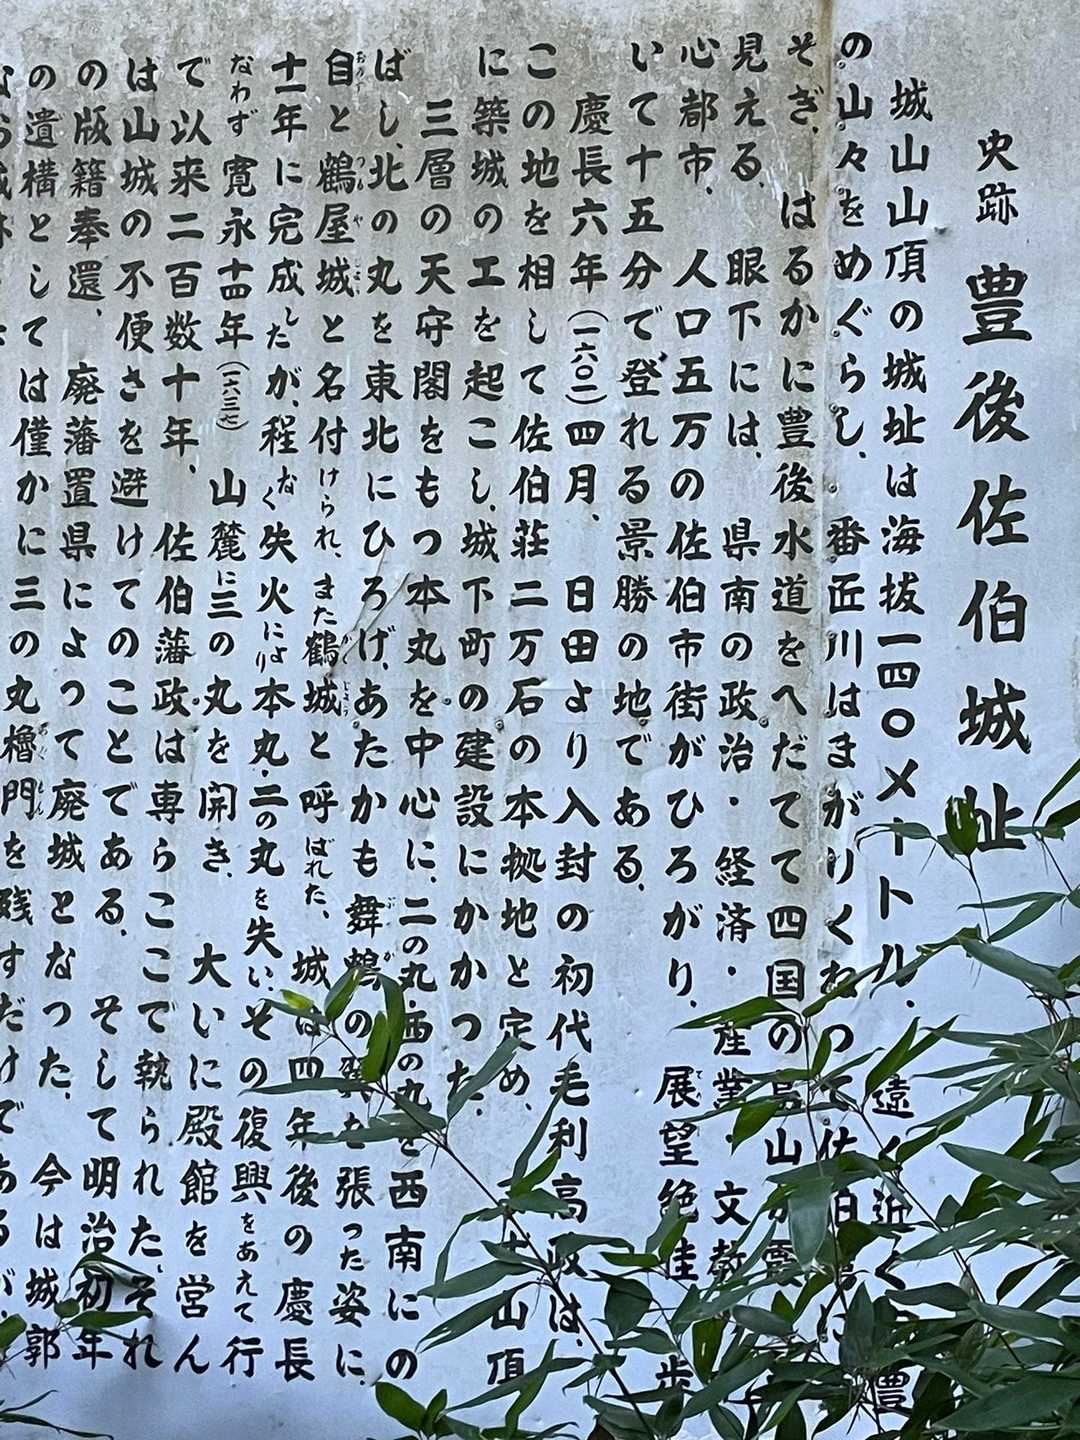 史跡 豊後佐伯城址
城山山頂の城址は海抜一四〇メートル、遠く近く 豊
の山々をめぐらし、番匠川はまがりくねって佐伯 に
そそぎ、はるかに豊後水道をへだてて四国の 山が霞
見える、眼下には、県南の政治・経済・産業・文教
心都市、人口五万の佐伯市街がひろがり、展望絶佳 歩
いて十五分で登れる景勝の地である、
慶長六年(一六〇一)四月、日田より入封の初代毛利高政は、
この地を相して佐伯荘二万石の本拠地と定め、 山頂
に築城の工を起こし、城下町の建設にかかった、
三層の天守閣をもつ本丸を中心に、二の丸・西の丸を西南にの
ばし、北の丸を東北にひろげ、あたかも舞鶴の翼を張った姿に、
自と鶴屋城と名付けられ、また鶴城と呼ばれた、城は四年後の慶長
十一年に完成したが、程なく失火により本丸・二の丸を失い、その復興をあえて行
なわず寛永十四年(一六三七)山麓に三の丸を開き、大いに殿館を営ん
で以来二百数十年、佐伯藩政は専らここで執られた、それ
は山城の不便さを避けてのことである、そして明治初年
の版籍奉還、廃藩置県によって廃城となった、今は城郭
の遺構としては僅かに三の丸櫓門を残すだけである